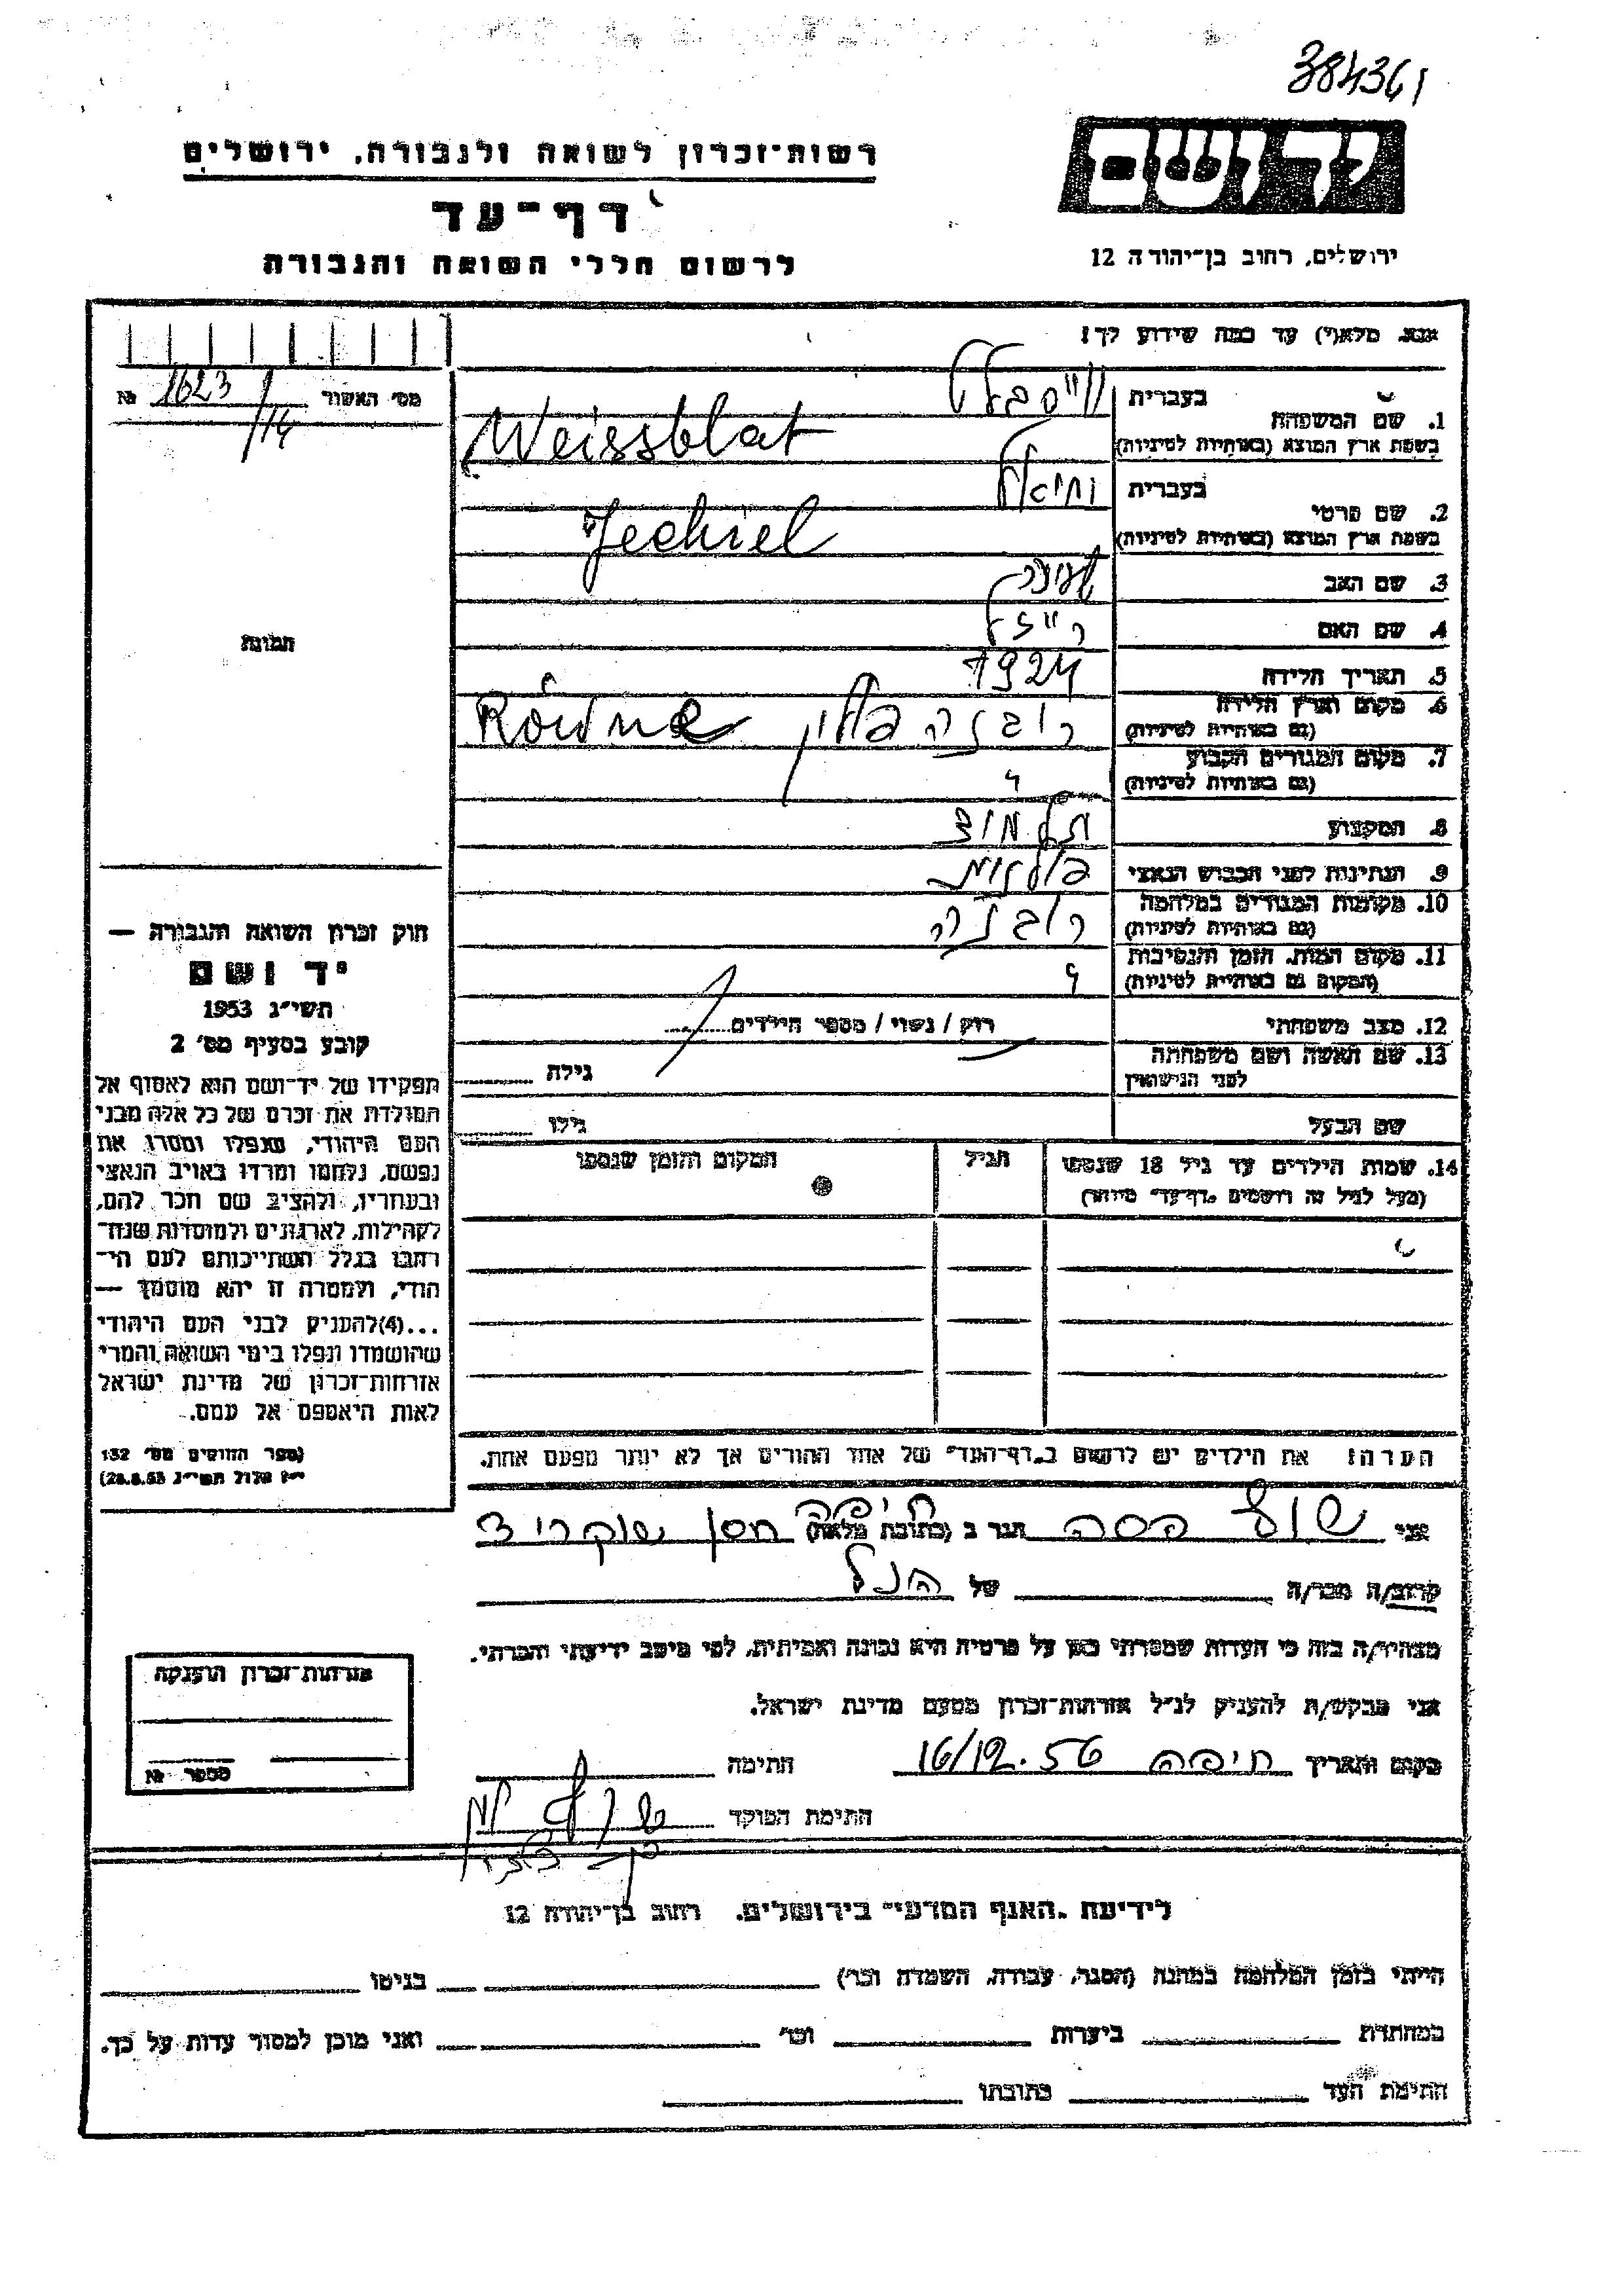 384361
יד ושם
רשות־זכרון לשואה ולגבורה, ירושלים
דף־עד
לרשום חללי השואה והגבורה
ירושלים, רחוב בן־יהודה 12
אנא, מלא(י) עד כמה שידוע לך!
מס׳ האשור 1623/14 №
1. שם המשפחה בעברית ווייסבלט
בשפת ארץ המוצא (באותיות לטיניות) Weissblat
2. שם פרטי בעברית
בשפת ארץ המוצא (באותיות לטיניות) Jechiel
3. שם האב
4. שם האם רייזל
5. תאריך הלידה 1924
6. מקום וארץ הלידה רובנה פולין Równe
(גם באותיות לטיניות)
7. מקום המגורים הקבוע
(גם באותיות לטיניות)
8. המקצוע
9. הנתינות לפני הכבוש הנאצי פולנית
10. מקומות המגורים במלחמה רובנה
(גם באותיות לטיניות)
11. מקום המות, הזמן והנסיבות ?
(המקום גם באותיות לטיניות)
12. מצב משפחתי רווק / נשוי / מספר הילדים
13. שם האשה ושם משפחתה
לפני הנישואין גילה
שם הבעל גילו
14. שמות הילדים עד גיל 18 שנספו הגיל המקום והזמן שנספו
(מעל לגיל זה רושמים „דף־עד״ מיוחד)
הערה: את הילדים יש לרשום ב„דף־העד״ של אחד ההורים אך לא יותר מפעם אחת.
תמונה
חוק זכרון השואה והגבורה —
יד ושם
תשי״ג 1953
קובע בסעיף מס׳ 2
תפקידו של יד־ושם הוא לאסוף אל
המולדת את זכרם של כל אלה מבני
העם היהודי, שנפלו ומסרו את
נפשם, נלחמו ומרדו באויב הנאצי
ובעוזריו, ולהציב שם וזכר להם,
לקהילות, לארגונים ולמוסדות שנח־
רבו בגלל השתייכותם לעם הי־
הודי, ולמטרה זו יהא מוסמך —
...(4) להעניק לבני העם היהודי
שהושמדו ונפלו בימי השואה והמרי
אזרחות־זכרון של מדינת ישראל
לאות היאספם אל עמם.
(ספר החוקים מס׳ 132
י״ז אלול תשי״ג 28.8.53)
אני פסה הגר ב (כתובת מלאה) חיפה
קרוב/ה מכר/ה של הנ״ל
מצהיר/ה בזה כי העדות שמסרתי כאן על פרטיה היא נכונה ואמיתית, לפי מיטב ידיעתי והכרתי.
אני מבקש/ת להעניק לנ״ל אזרחות־זכרון מטעם מדינת ישראל.
מקום ותאריך חיפה 16/12.56 חתימה
חתימת הפוקד
אזרחות־זכרון הוענקה
מספר №
לידיעת „האגף המדעי״ בירושלים, רחוב בן־יהודה 12
הייתי בזמן המלחמה במחנה (הסגר, עבודה, השמדה וכו׳) בגיטו
במחתרת ביערות וכו׳ ואני מוכן למסור עדות על כך.
חתימת העד כתובתו